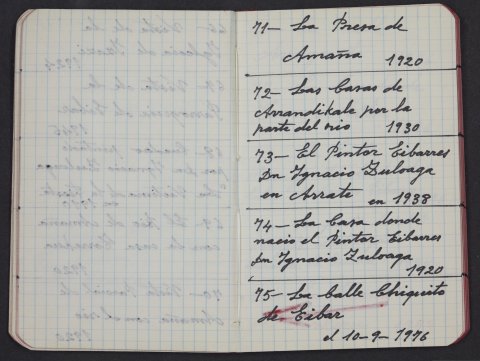 71- La Presa de
Amaña 1920
72- Las Casas de
Arrandikale por la
parte del rio 1930
73- El Pintor Eibarres
Dn Ignacio Zuloaga
en Arrate en 1938
74- La Casa donde
nacio el Pintor Eibarres
Dn Ignacio Zuloaga
1920
75- La Calle Chiquito
de Eibar
el 10-9-1976